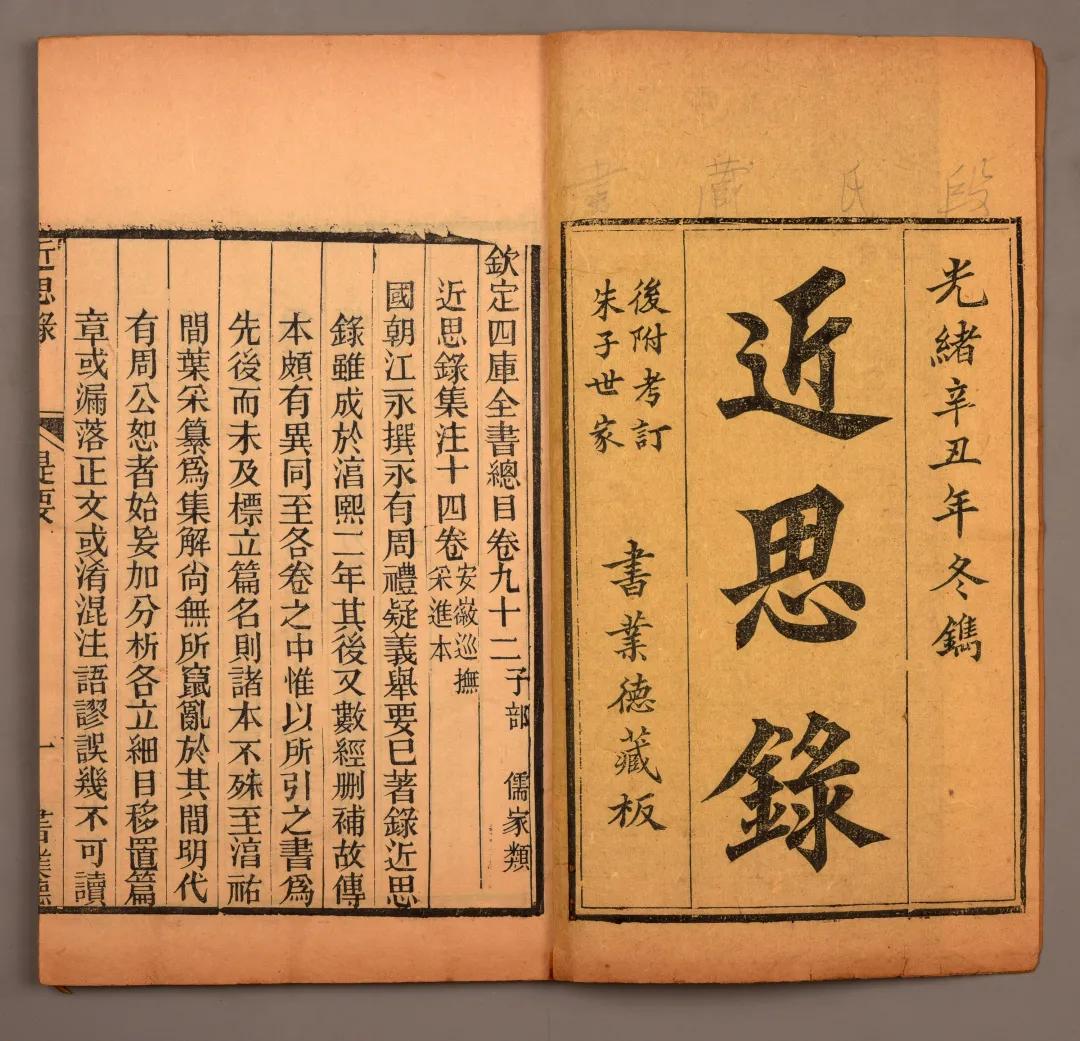 段氏藏書
光緒辛丑年冬鐫
近思錄
後附考訂
朱子世家
書業德藏板
欽定四庫全書總目卷九十二子部　儒家類
近思錄集注十四卷安徽巡撫采進本
國朝江永撰永有周禮疑義舉要已著錄近思
錄雖成於淳熙二年其後又數經刪補故傳
本頗有異同至各卷之中惟以所引之書爲
先後而未及標立篇名則諸本不殊至淳祐
間葉采纂爲集解尙無所竄亂於其間明代
有周公恕者始妄加分析各立細目移置篇
章或漏落正文或淆混注語謬誤幾不可讀
近思錄　提要　一　書業德